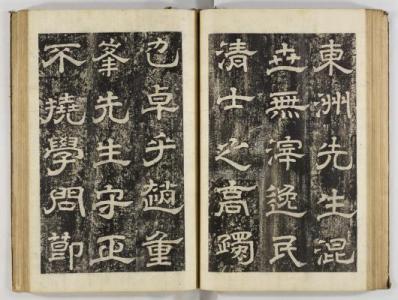 東州先生混
世無滓逸民
清士之高躅
也卓乎趙重
峯先生守正
不撓學問節